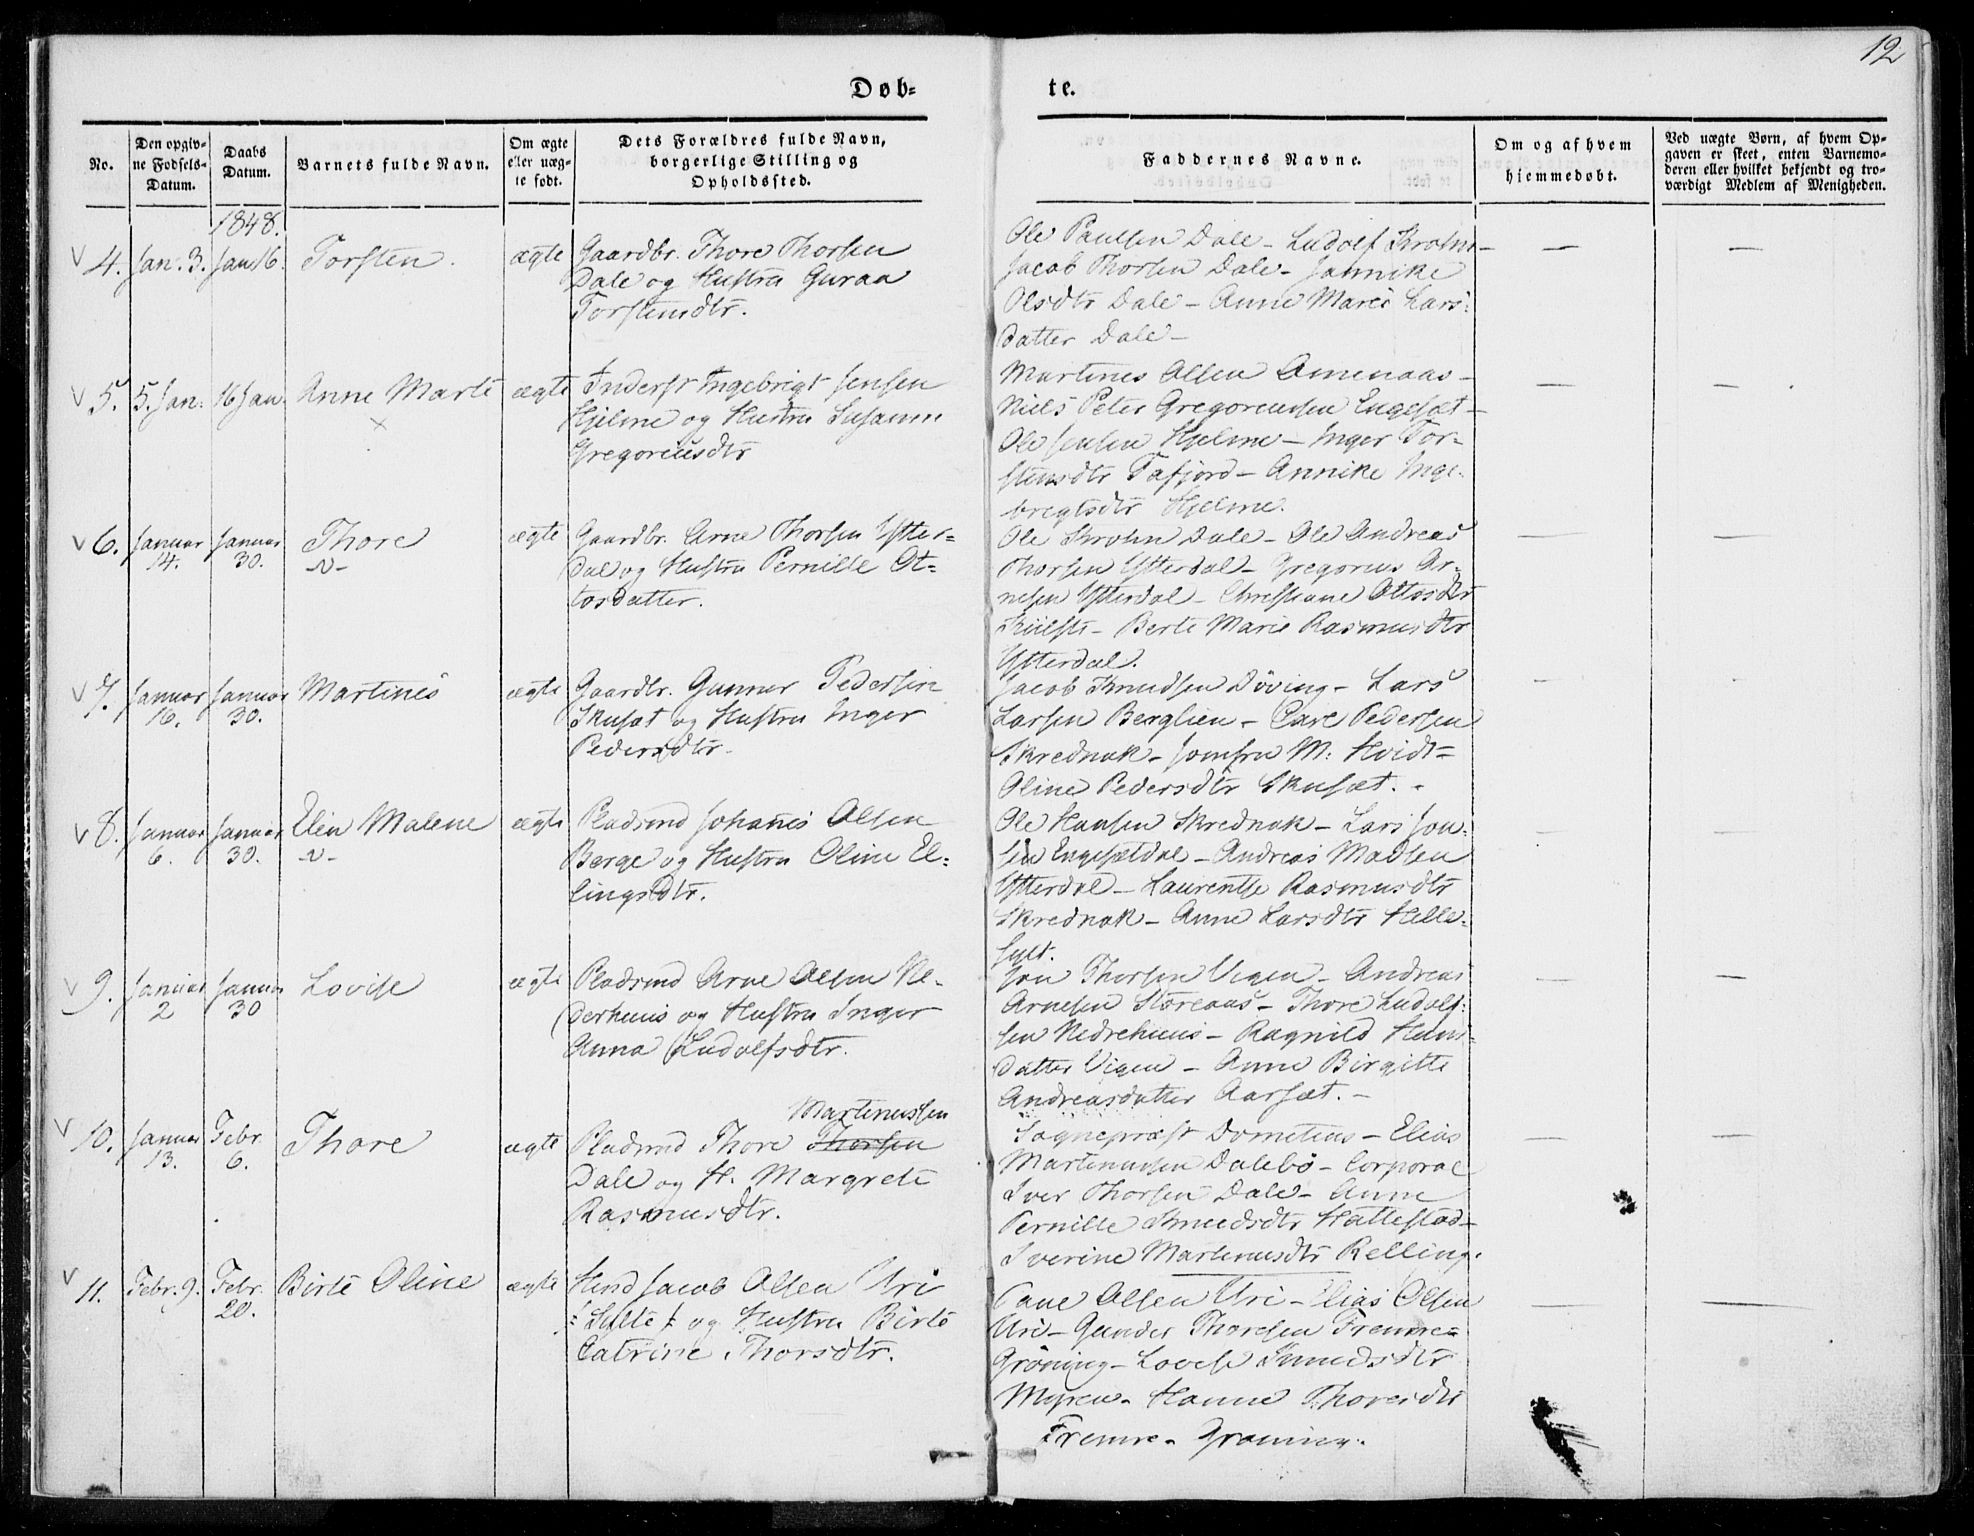 12
Døb-
te.
No.
Den opgiv-
ne Fødsels-
Datum.
Daabs
Datum.
Barnets fulde Navn.
Om ægte
eller uæg-
te født.
Dets Forældres fulde Navn,
borgerlige Stilling og
Opholdssted.
Faddernes Navne.
Om og af hvem
hjemmedøbt.
Ved uægte Børn, af hvem Op-
gaven er skeet, enten Barnemo-
deren eller hvilket bekjendt og tro-
værdigt Medlem af Menigheden.
1848.
4. Jan. 3. Jan 16. Torsten. ægte
Gaardbr. Thore Thorsen
Dale og Hustru Guraa
Torstensdtr.
Ole Paulsen Dale - Ludolf Krohn -
Jacob Thorsen Dale - Jannike
Olsdtr Dale - Anne Marie Lars-
datter Dale -
5. 5. Jan. 16 Jan. Anne Marte ægte
Inderst Ingebrigt Jensen
Hjelme og Hustru Susanne
Gregoriusdtr
Martines Olsen Omenaas -
Niels Peter Gregoriussen Engesæt -
Ole Jensen Hjelme - Inger Tor-
stensdtr Tafjord - Annike Inge-
bregtsdtr Hjelme.
6. Januar 14. Januar 30. Thore ægte
Gaardbr. Arne Thorsen Ytter=
dal og Hustru Pernille Ot=
tosdatter.
Ole Krohn Dale - Ole Andreas
Thorsen Ytterdal - Gregorius Ar-
nesen Ytterdal - Christiane Ottosdtr
- Berte Marie Rasmusdtr
Ytterdal.
7. Januar 16. Januar 30. Martines ægte
Gaardbr. Gunner Pedersen
Skusæt og Hustru Inger
Pedersdtr.
Jacob Knudsen Døving - Lars
Larsen Berglien - Carl Pedersen
Skrednak - Jomfru M. Hvidt -
Oline Pedersdtr Skusæt. -
8. Januar 6. Januar 30. Elen Malene ægte
Pladsmd Johanes Olsen
Berge og Hustru Oline El=
lingsdtr.
Ole Hansen Skrednak - Lars Jon-
sen Engesætdal - Andreas Madsen
Ytterdal - Laurentse Rasmusdtr
Skrednak - Anne Larsdtr Helle-
sylt.
9. Januar 2 Januar 30 Lovise ægte
Pladsmd Arne Olsen Ne-
derhuus og Hustru Inger
Anna Ludolfsdtr.
Jon Thorsen Vigen - Andreas
Arnesen Storeaas - Thore Ludolf-
sen Nedrehuus - Ragnild Hans-
datter Vigen - Anne Birgitte
Andreasdatter Aarsæt. -
10. Januar 13. Febr. 6. Thore ægte
Martinussen
Pladsmd Thore Thorsen
Dale og H. Margrete
Rasmusdtr.
Sognepræst Dometius - Elias
Martinussen Dalebø - Corporal
Iver Thorsen Dale - Anne
Pernille Knudsdtr Hattestad -
Iverine Martinusdtr Relling.
11. Febr. 9. Febr. 20. Birte Oline ægte
Hmd Jacob Olsen Uri
/: Sylte :/ og Hustru Birte
Catrine Thorsdtr.
Olsen Uri - Elias Olsen
Uri - Gunder Thoresen Fremre-
Grøning - Lovise Knudsdtr
Myren - Hanne Thoresdtr
Fremre - Grøning.